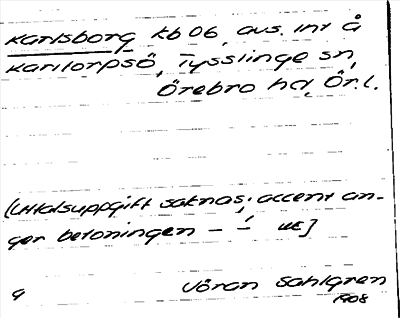 Karlsborg kb 06, avs. int å
Karltorpsö, Tysslinge sn,
Örebro hd, Ör. l.
(Uttalsuppgift saknas; accent an-
ger betoningen – ´– WE]
Jöran Sahlgren
9 1908